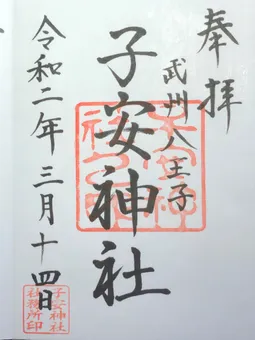 奉拝
武州八王子
子安神社
令和二年三月十四日
子安神社
社務所印